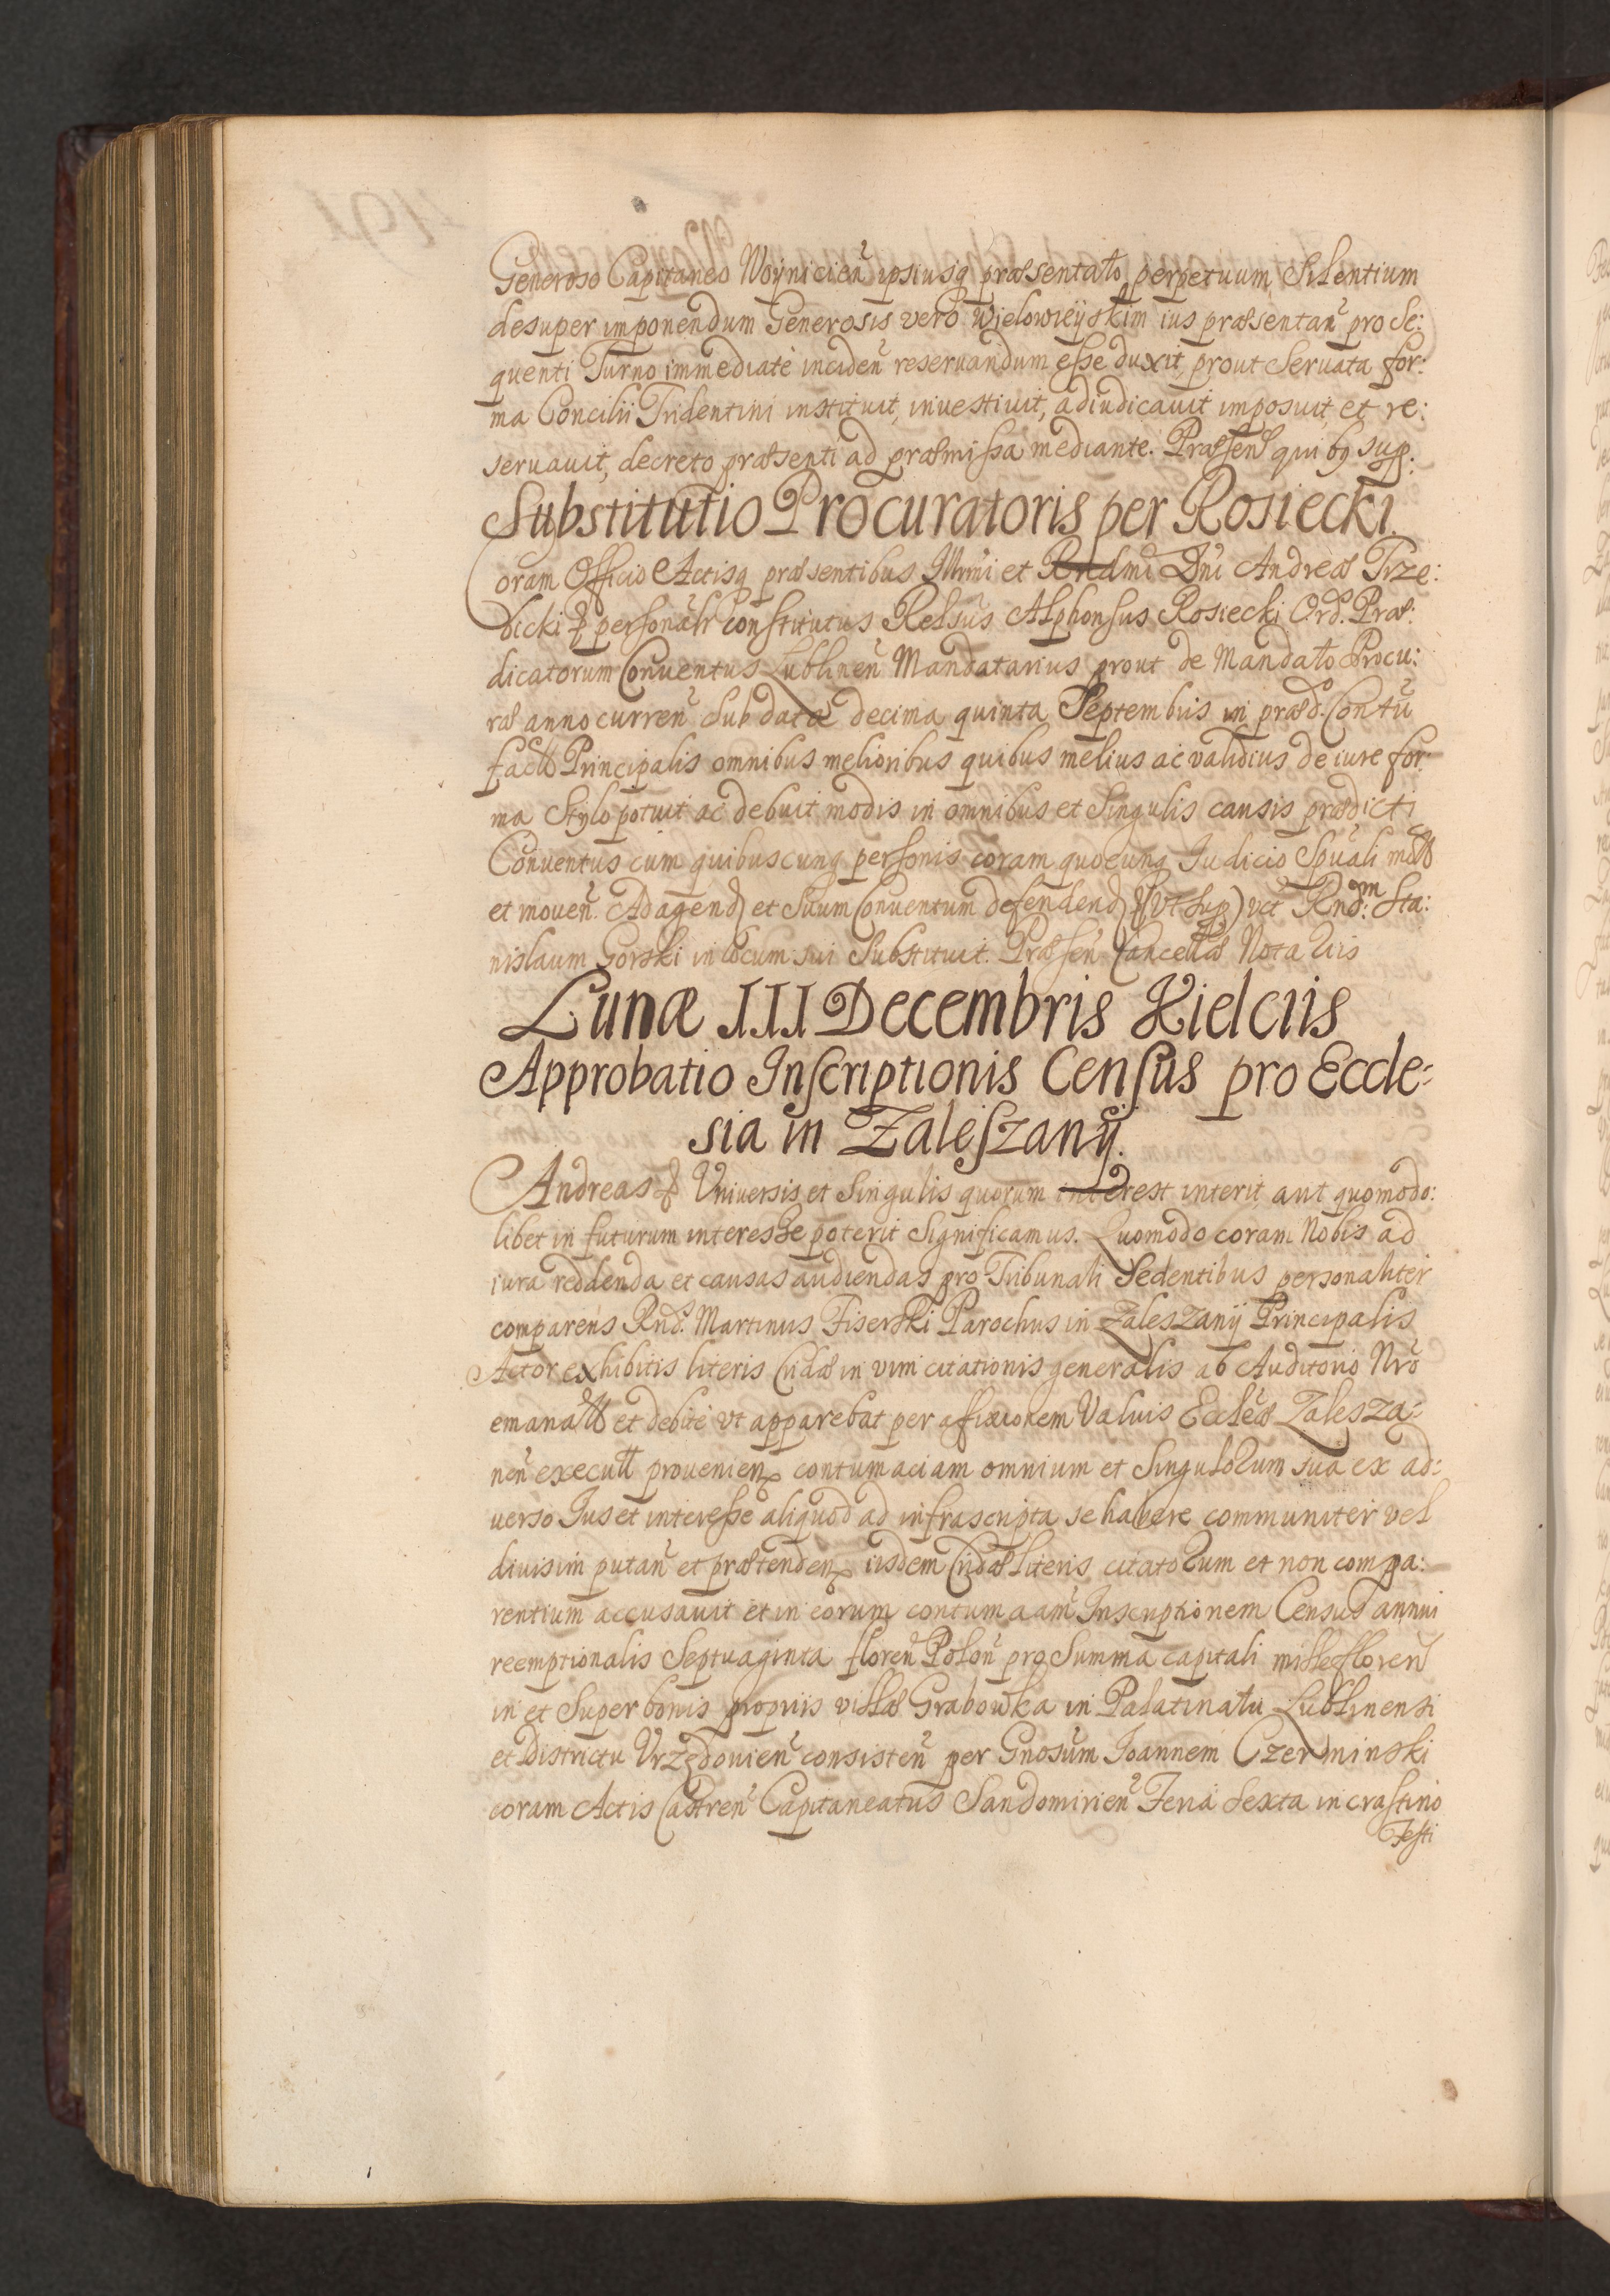 Generoso Capitaneo Woynicień ipsiusq præsentato perpetuum Silentium
desuper imponendum Generosis vero Wielowieyskim ius præsentań pro se:
quenti Turno immediatè incideń reseruandum esse duxit, prout seruata for:
ma Concilii Tridentini instituit, inuestiuit, adiudicauit imposuit, et re:
seruauit, decreto præsenti ad præmissa mediante. Præsen quibq sup:
Substitutio Procuratoris per Rosiecki
Coram Officio Actisq præsentibus Illmi et Rndmi Dni Andreæ Trze:
bicki & personalr constitutus Relsus Alphonsus Rosiecki Ord. Præ:
dicatorum Conuentus Lublineń Mandatarius prout de Mandato Procu:
ræ anno curreń sub data decima quinta Septembris in præd. Contu
fact Principalis omnibus melioribus quibus melius ac validius de iure for:
ma Stylo potuit ac debuit modis in omnibus et singulis causis prædicti
Conuentus cum quibuscunq personis coram quocunq Iudicio Spuali mot
et moueń. Ad agend et suum Conuentum defendend (vt sup) vct Rnd:m Sta:
nislaum Gorski in locum sui Substituit. Præsen Cancellæ Nota Uis
Lunæ III Decembris Kielciis
Approbatio Inscriptionis Census pro Eccle:
sia in Zaleszany.
Andreas & Vniuersis et Singulis quorum interest interit aut quomodo:
libet in futurum interesse poterit Significamus. Quomodo coram Nobis ad
iura reddenda et causas audiendas pro Tribunali Sedentibus personaliter
comparens Rnds. Martinus Fiserski Parochus in Zaleszany Principalis
Actor exhibitis literis Cridæ in vim citationis generalis ab Auditorio Nro
emanatt et debitè vt apparebat per affixionem Valuis Ecclæ Zalesza:
neń executt prouenien contumaciam omnium et Singulorum sua ex ad:
uerso Ius et interesse aliquod ad infrascripta se habere communiter vel
diuisim putań et prætenden iisdem Cridæ literis citatorum et non compa:
rentium accusauit et in eorum contumaam Inscriptionem Census annui
reemptionalis Septuaginta floreń Poloń pro Summa capitali mille floreń
in et super bonis propriis villæ Grabowka in Palatinatu Lublinensi
et Districtu Vrzędouień consisteń per Gnosum Ioannem Czerminski
coram Actis Castreń Capitaneatus Sandomirień Feria sexta in crastino
Festi